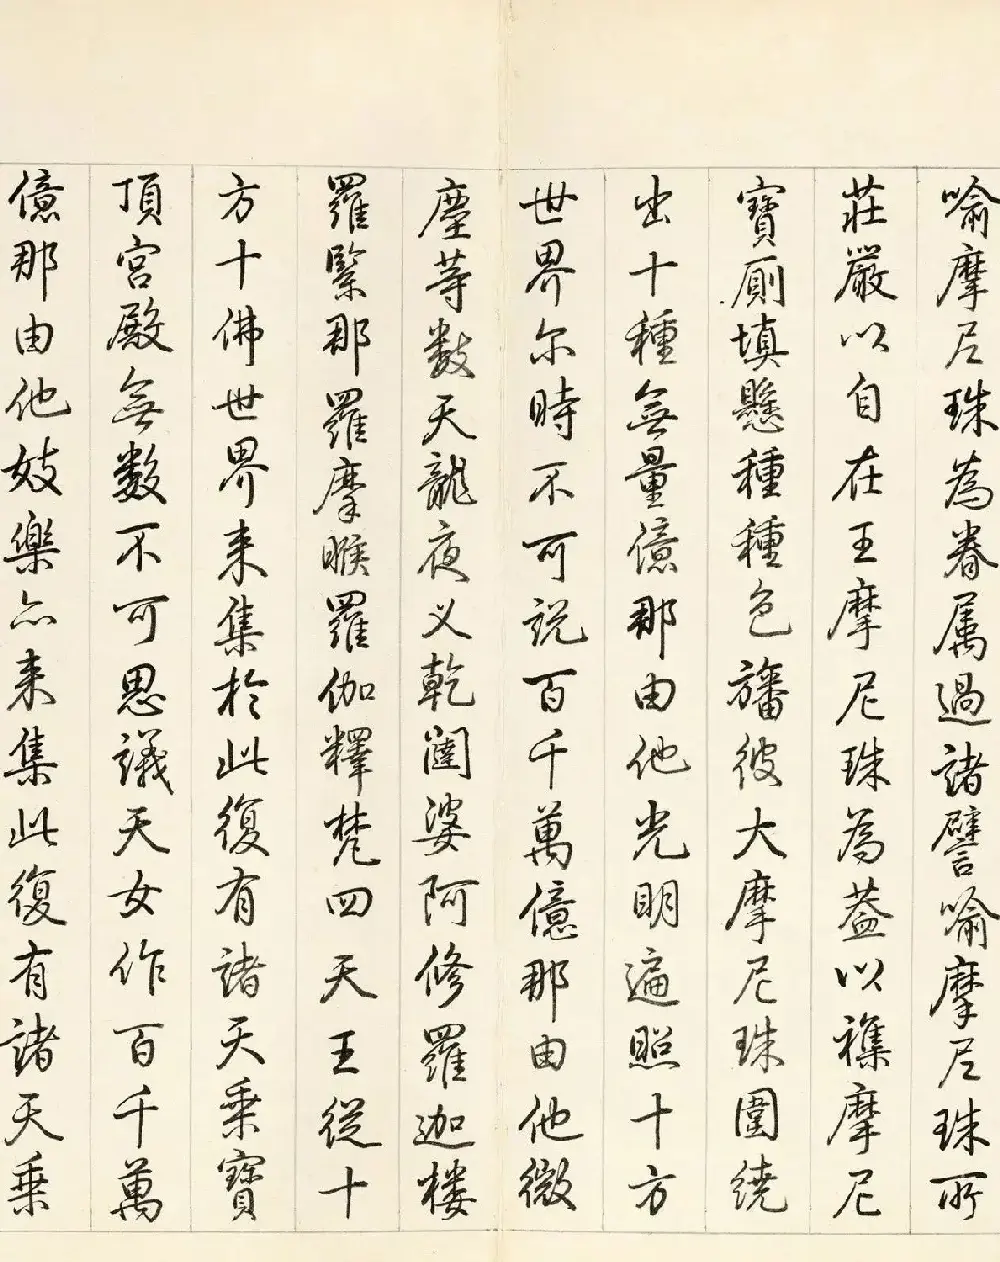 喻摩尼珠為眷属過諸譬喻摩尼珠所
莊嚴以自在王摩尼珠為蓋以襍摩尼
寶廁填懸種種色旛彼大摩尼珠圍繞
出十種無量億那由他光明遍照十方
世界尔時不可説百千萬億那由他微
塵等数天龍夜义乾闥婆阿修羅迦楼
羅緊那羅羅摩睺羅伽釋梵四天王從十
方十佛世界来集於此復有諸天乘寶
頂宮殿無数不可思議天女作百千萬
億那由他妓樂亦来集此復有諸天乘